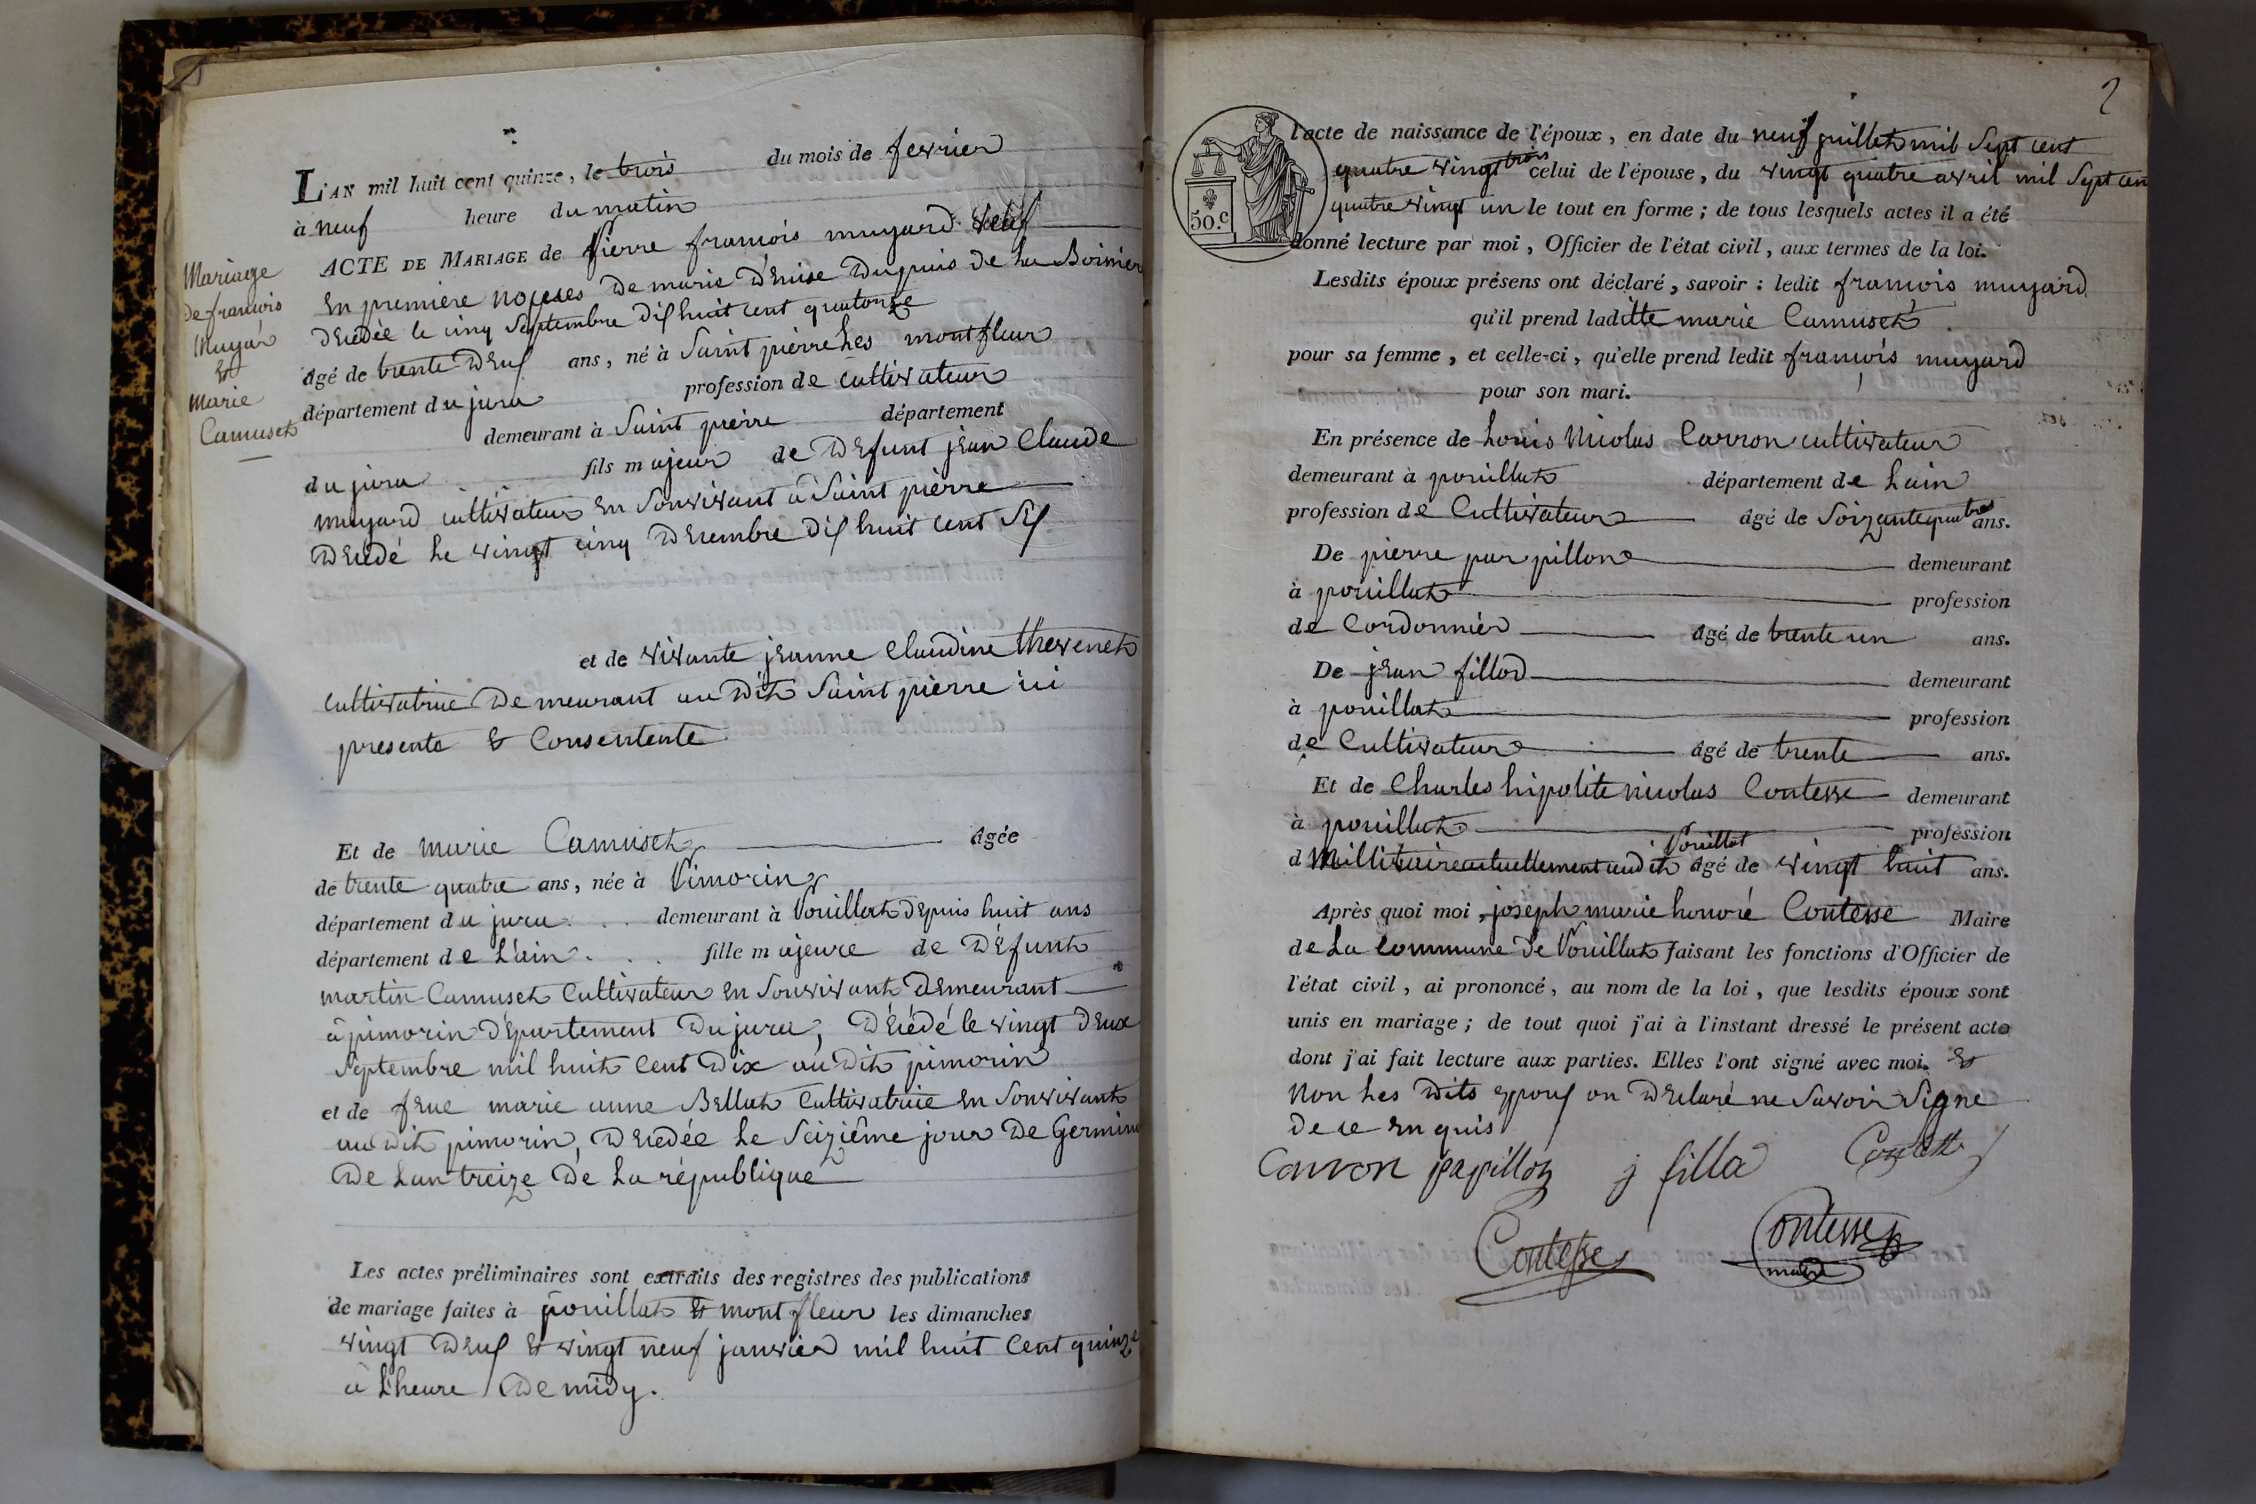 L'AN mil huit cent quinze, le trois du mois de fevrier
à neuf heure du matin
Mariage
de francois
Muyar
et
Marie
Camuset
ACTE DE MARIAGE de pierre francois muyard veuf
En premiere nopces de marie Denise Dupuis de la Boiniere
Decedée le cinq Septembre dix huit cent quatorze
âgé de trente Deux ans, né à Saint pierre les montfleur
département du jura profession de cultivateur
demeurant à Saint pierre département
du jura fils majeur de Defunt jean Claude
muyard cultivateur en Sonvivant à Saint pierre
Decedé Le vingt cinq Decembre dix huit cent Six
et de vivante jeanne Claudine thevenet
cultivatrice Demeurant au Dit Saint pierre ici
presente & Consentente
Et de marie Camuset âgée
de trente quatre ans, née à Pimorin
département du jura demeurant à Pouillat depuis huit ans
département de L'ain fille majeure de Défunt
martin Camuset Cultivateur en Sonvivant Demeurant
à pimorin Département Du jura, Décédé le vingt Deux
Septembre mil huit Cent Dix au Dit pimorin
et de feue marie anne Bellat Cultivatrice en Sonvivant
au Dit pimorin, Decedée Le Seizième jour De Germinal
De Lan treize De La république
Les actes préliminaires sont extraits des registres des publications
de mariage faites à pouillat & mont fleur les dimanches
vingt Deux & vingt neuf janvier mil huit Cent quinze
à L'heure De midy.
2
50.c
l'acte de naissance de l'époux, en date du neuf juillet mil Sept cent
quatre vingt trois celui de l'épouse, du vingt quatre avril mil Sept cent
quatre vingt un le tout en forme ; de tous lesquels actes il a été
donné lecture par moi, Officier de l'état civil, aux termes de la loi.
Lesdits époux présens ont déclaré, savoir : ledit francois muyard
qu'il prend laditte marie Camuset
pour sa femme, et celle-ci, qu'elle prend ledit francois muyard
pour son mari.
En présence de Louis Nicolas Carron cultivateur
demeurant à pouillat département de Lain
profession de Cultivateur âgé de Soizante quatre ans.
De pierre par pillon demeurant
à pouillat profession
de Cordonnier âgé de trente un ans.
De jean fillod demeurant
à pouillat profession
de Cultivateur âgé de trente ans.
Et de Charles hipolite nicolas Contesse demeurant
à pouillat profession
d Millitaire actuellement audit Pouillat âgé de vingt huit ans.
Après quoi moi, joseph marie honoré Contesse Maire
de La Commune de Pouillat faisant les fonctions d'Officier de
l'état civil, ai prononcé, au nom de la loi, que lesdits époux sont
unis en mariage ; de tout quoi j'ai à l'instant dressé le présent acte
dont j'ai fait lecture aux parties. Elles l'ont signé avec moi. Et
Non Les Dits epoux on Declaré ne Savoir Signe
De ce En quis
Carron papillon j filla
Contesse Contesse
maire